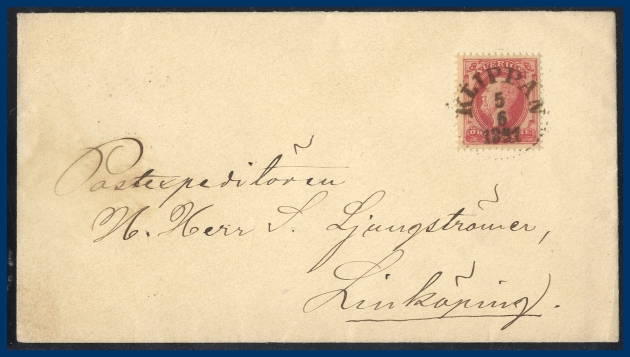 SVERIGE
KLIPPAN
5
6
1891
Postexpeditören
H. Herr S. Ljungströmer,
Linköping.